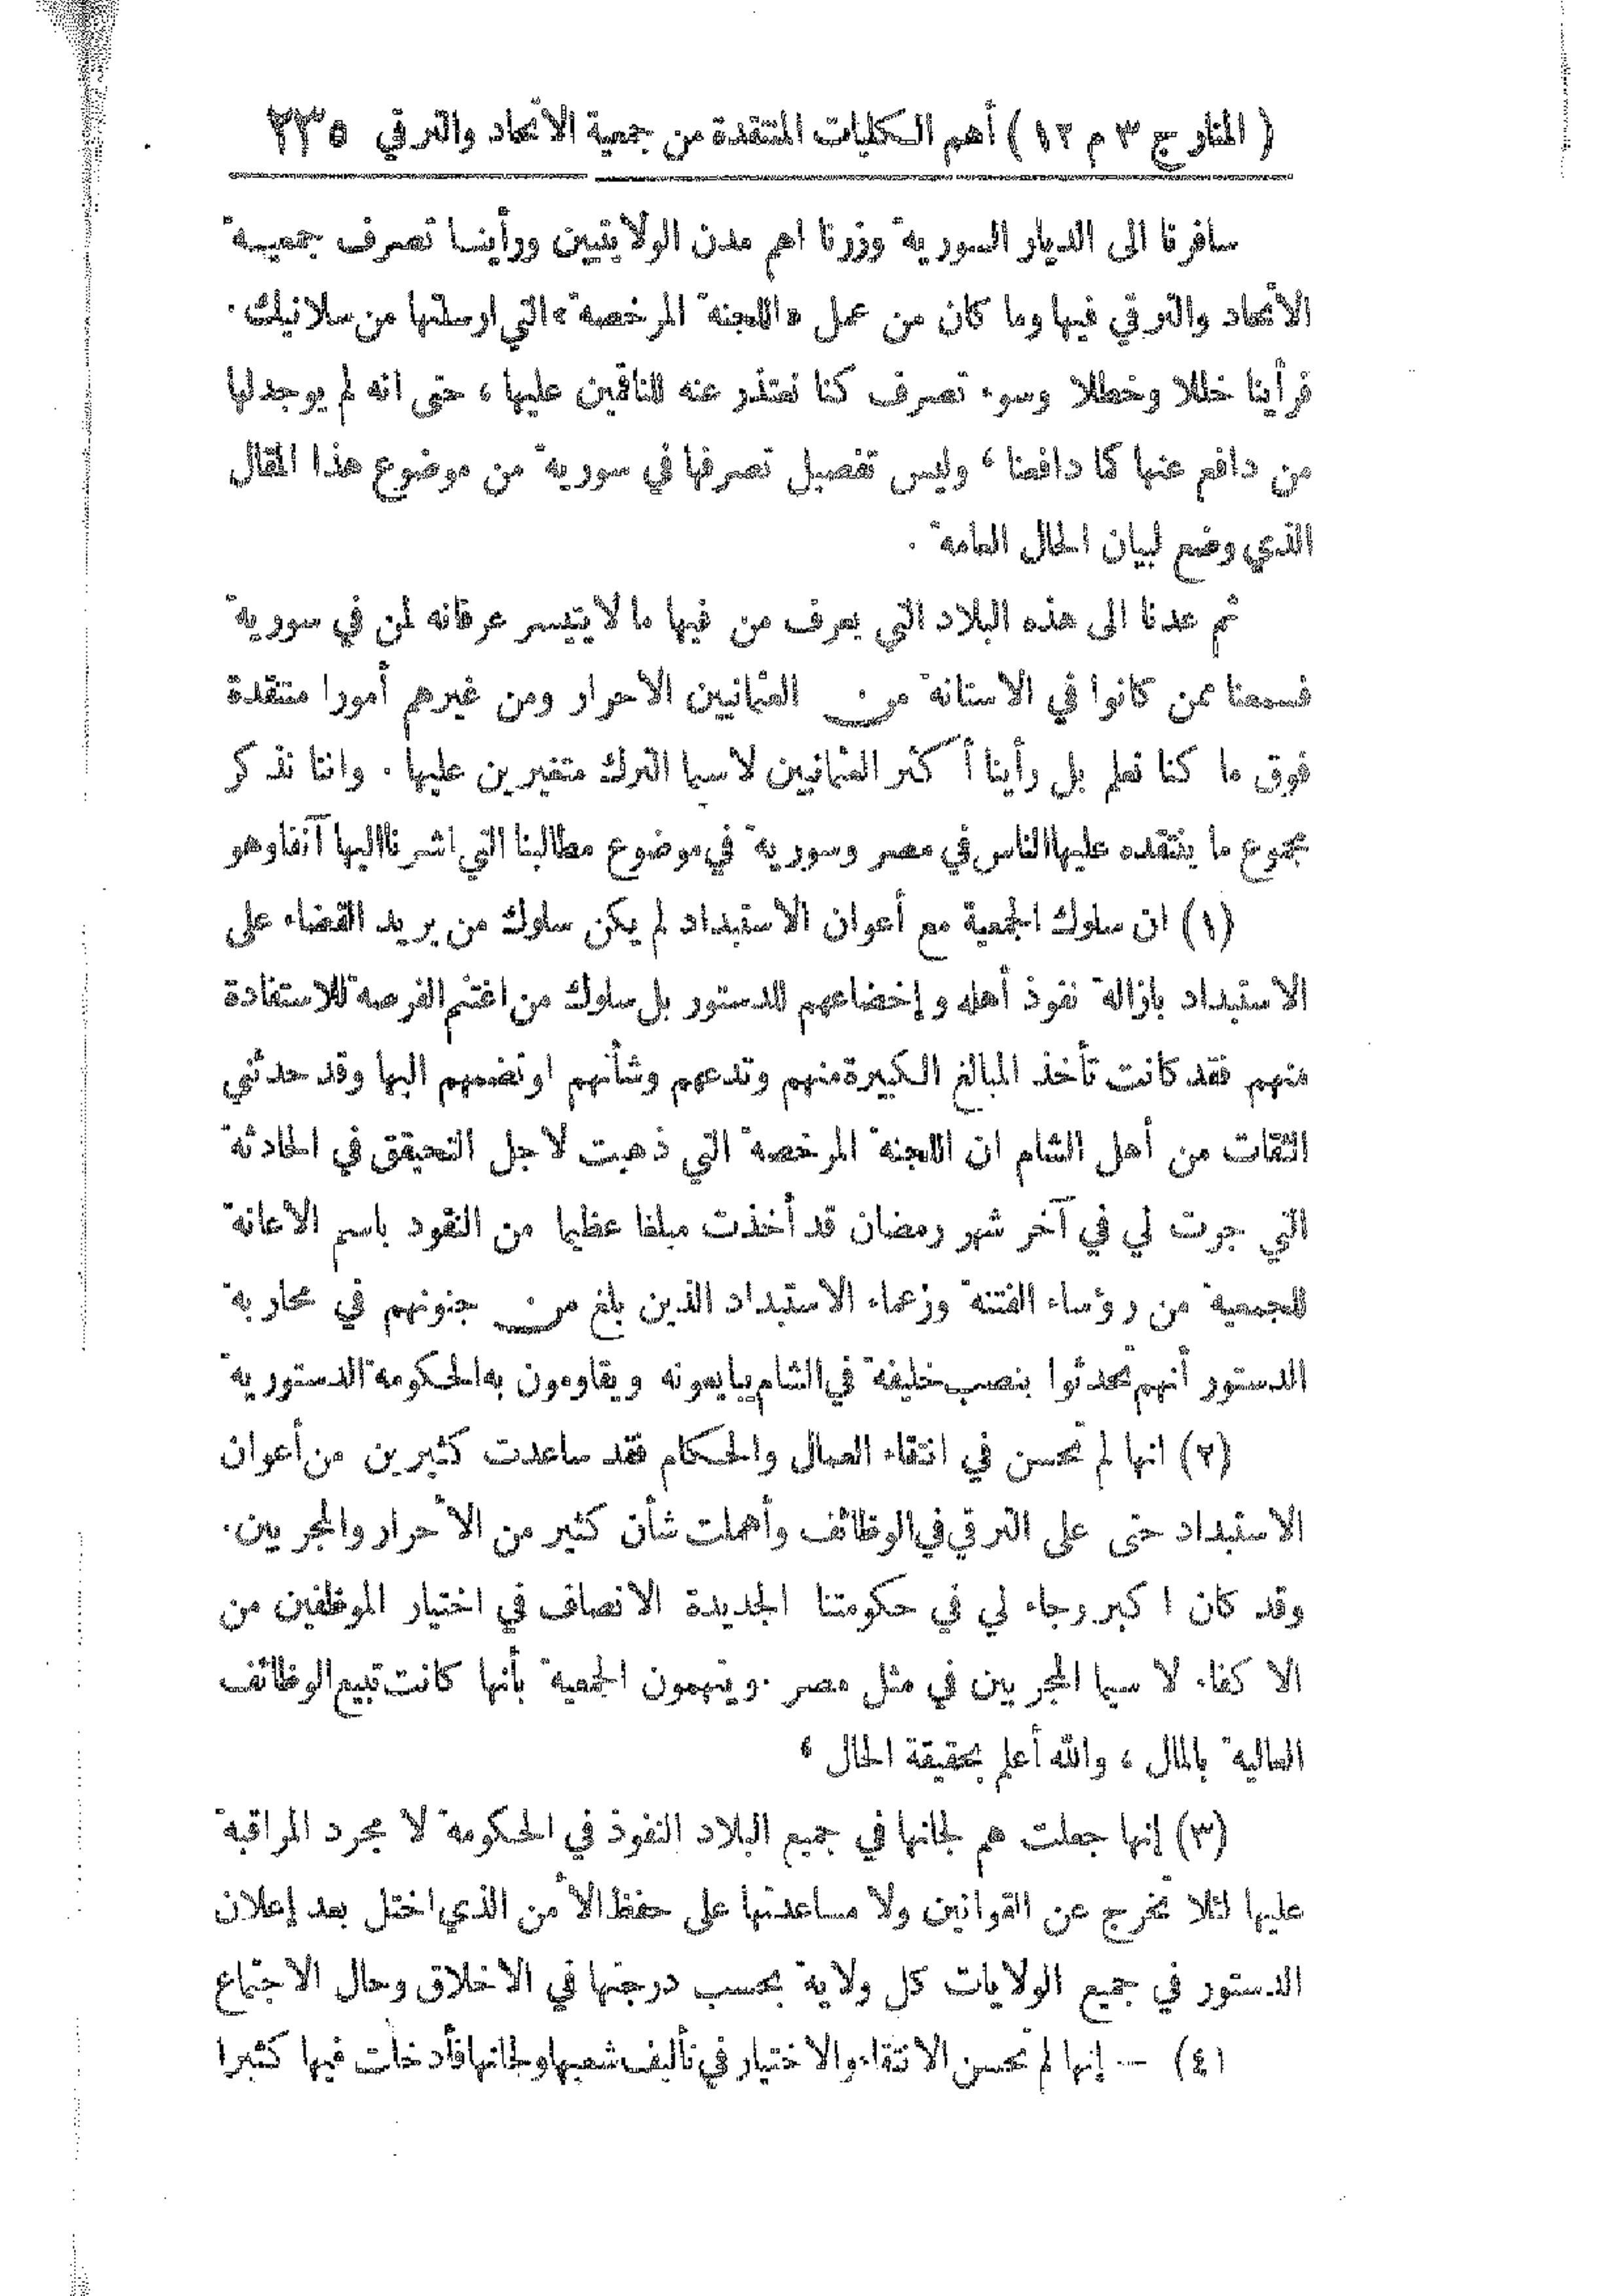 ( المنار ج ٣ م ١٢ ) أهم الكليات المنتقدة من جمعية الاتحاد والترقي ٢٣٥
سافرنا الى الديار السورية وزرنا اهم مدن الولايتين ورأينا تصرف جمعية
الاتحاد والترقي فيها وما كان من عمل «اللجنة المرخصة» التي ارسلتها من سلانيك.
فرأينا خللا وخطلا وسوء تصرف كنا نعتذر عنه للناقمين عليها ، حتى انه لم يوجد لها
من دافع عنها كما دافعنا ، وليس تفصيل تصرفها في سورية من موضوع هذا المقال
الذي وضع لبيان الحال العامة .
ثم عدنا الى هذه البلاد التي يعرف من فيها ما لا يتيسر عرفانه لمن في سورية
فسمعنا ممن كانوا في الاستانة من العثمانيين الاحرار ومن غيرهم أمورا منتقدة
فوق ما كنا نعلم بل رأينا أكثر العثمانيين لا سيما الترك متغيرين عليها . واننا نذكر
مجموع ما ينتقده عليها الناس في مصر وسورية في موضوع مطالبنا التي اشرنا اليها آنفا وهو
(١) ان سلوك الجمعية مع أعوان الاستبداد لم يكن سلوك من يريد القضاء على
الاستبداد بازالة نفوذ أهله وإخضاعهم للدستور بل سلوك من اغتنم الفرصة للاستفادة
منهم فقد كانت تأخذ المبالغ الكبيرة منهم وتدعهم وشأنهم او تضمهم اليها وقد حدثني
الثقات من أهل الشام ان اللجنة المرخصة التي ذهبت لاجل التحيقق في الحادثة
التي جرت لي في آخر شهر رمضان قد أخذت مبلغا عظيما من النقود باسم الاعانة
للجمعية من رؤساء الفتنة وزعماء الاستبداد الذين بلغ من جنونهم في محاربة
الدستور أنهم تحدثوا بنصب خليفة في الشام يبايعونه ويقاومون به الحكومة الدستورية
(٢) انها لم تحسن في انتقاء العمال والحكام فقد ساعدت كثيرين من أعوان
الاستبداد حتى على الترقي في الوظائف وأهملت شأن كثير من الأحرار والمجربين.
وقد كان اكبر رجاء لي في حكومتنا الجديدة الانصاف في اختيار الموظفين من
الاكفاء لا سيما المجربين في مثل مصر . ويتهمون الجمعية بأنها كانت تبيع الوظائف
العالية بالمال ، والله أعلم بحقيقة الحال ،
(٣) إنها جعلت هم لجانها في جميع البلاد النفوذ في الحكومة لا مجرد المراقبة
عليها لئلا تخرج عن القوانين ولا مساعدتها على حفظ الأمن الذي اختل بعد إعلان
الدستور في جميع الولايات كل ولاية بحسب درجتها في الاخلاق وحال الاجتماع
(٤) — إنها لم تحسن الانتقاء والاختيار في تأليف شعبها ولجانها فأدخلت فيها كثيرا